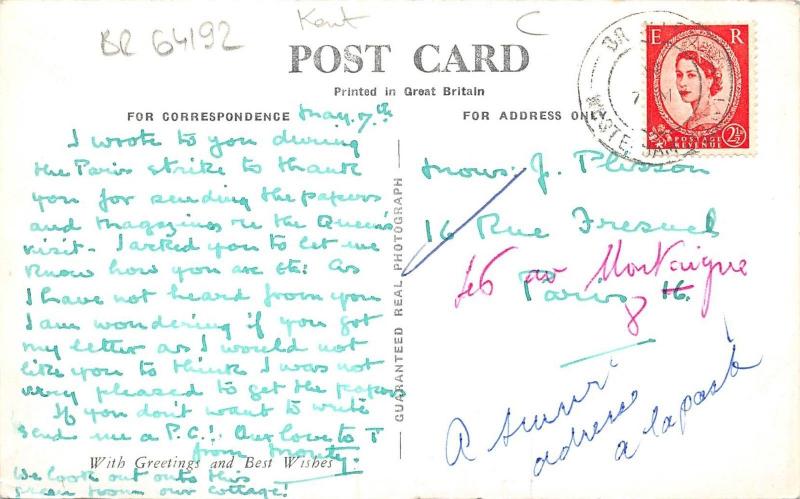 BR 64192
Kent
C
POST CARD
Printed in Great Britain
FOR CORRESPONDENCE
FOR ADDRESS ONLY
May 17th
I wrote to you during
the Paris strike to thank
you for sending the papers
and magazines re the Queen's
visit. I asked you to let me
know how you are etc: As
I have not heard from you
I am wondering if you got
my letter as I would not
like you to think I was not
very pleased to get the papers
If you don't want to write
send me a P.C.! Our love to T
from Monty.
With Greetings and Best Wishes
We look out onto this
green from our cottage!
GUARANTEED REAL PHOTOGRAPH
E R
2½
POSTAGE
REVENUE
Mons: J. Plisson
16 Rue Fresnel
46 av Montaigne
Paris 16.
8
A suivre
adresse
a la poste